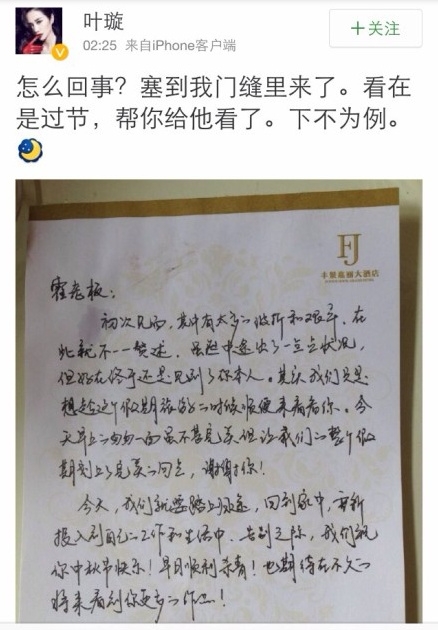 叶璇
02:25 来自iPhone客户端
+关注
怎么回事？塞到我门缝里来了。看在
是过节，帮你给他看了。下不为例。
FJ
大酒店
霍老板：
初次见面，其中有太多的波折和艰辛，在
此就不一赘述。虽然中途出了一点点状况，
但好在终于还是见到了你本人。其实我们只是
想趁这个假期旅游的时候顺便来看看你。今
天早上的匆匆一面虽不甚完美但让我们的整个假
期划上了完美的句点，谢谢你！
今天，我们就要踏上归途，回到家中，重新
投入到自己的工作和生活中。告别之际，我们祝
你中秋节快乐！早日顺利杀青！也期待在不久的
将来看到你更多的作品！